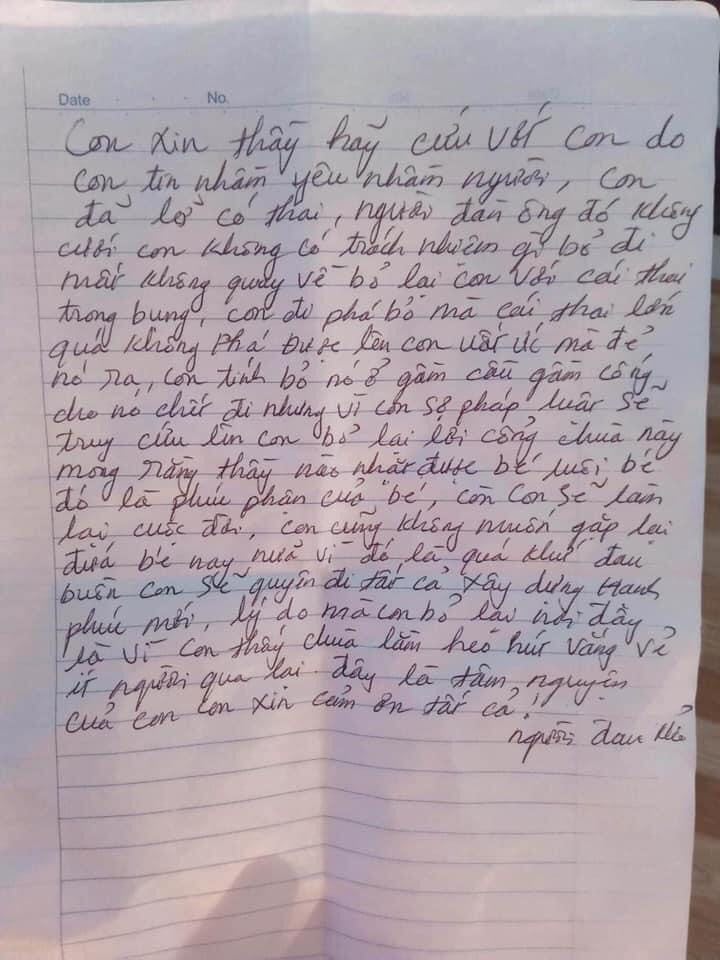 Date . . . No.
Con xin thầy hãy cứu với con do
con tin nhầm yêu nhầm người, con
đã lở có thai, người đàn ông đó không
cưới con không có trách nhiệm gì bỏ đi
mất không quay về bỏ lại con với cái thai
trong bụng, con đi phá bỏ mà cái thai lớn
quá không phá được lên con uất ức mà đẻ
nó ra, con tính bỏ nó ở gầm cầu gầm cống
cho nó chết đi nhưng vì con sợ pháp luật sẽ
truy cứu lên con bỏ lại lối cổng chùa này
mong rằng thầy nào nhặt được bé nuôi bé
đó là phúc phận của "bé", còn con sẽ làm
lại cuộc đời, con cũng không muốn gặp lại
đứa bé nay nữa vì đó là quá khứ đau
buồn con sẽ quyên đi tất cả xây dựng hanh
phúc mới, lý do mà con bỏ lại nơi đây
là vì con thấy chùa lằm héo hút vắng vẻ
ít người qua lại. đây là tâm nguyện
của con con xin cảm ơn tất cả!
người đau khổ